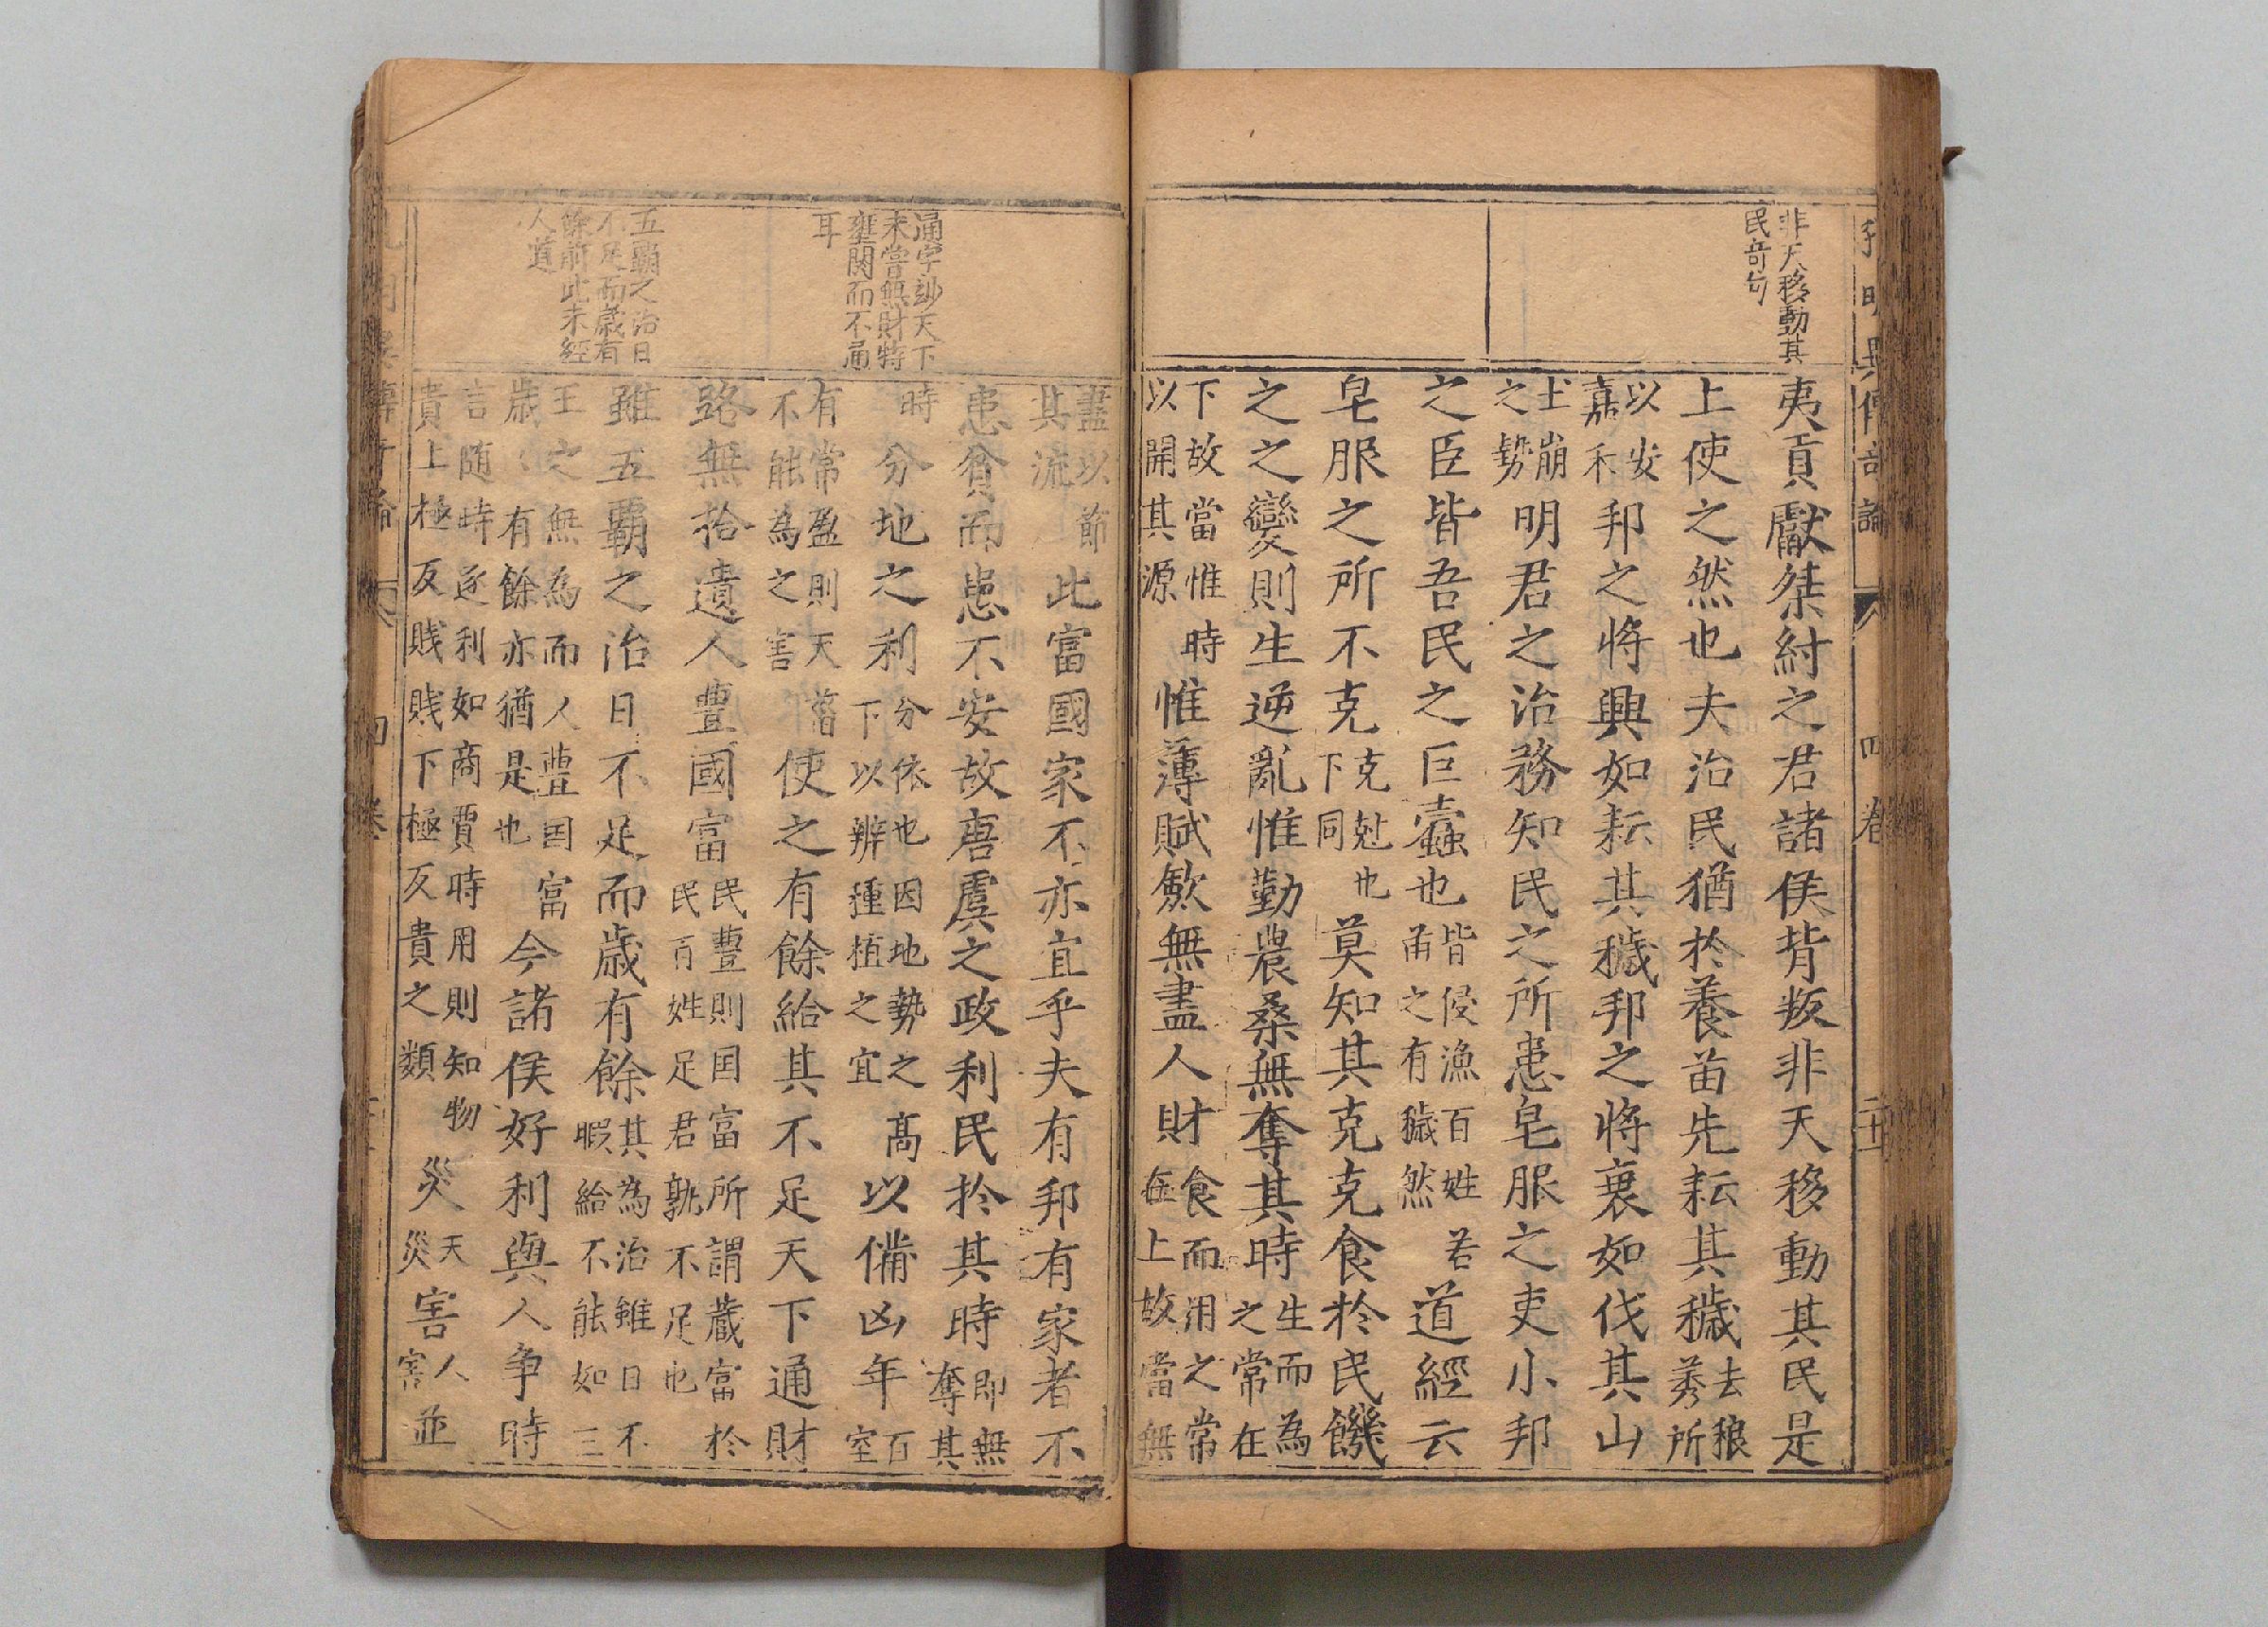 非天移動其
民奇句
夷貢獻桀紂之君諸侯背叛非天移動其民是
上使之然也夫治民猶於養苗先耘其穢去狼莠所
以安嘉禾邦之將興如耘其穢邦之將衰如伐其山
土崩之勢明君之治務知民之所患皂服之吏小邦
之臣皆吾民之巨蠹也皆侵漁百姓甭之有穢然若道經云
皂服之所不克克尅也下同莫知其克克克食於民饑
之之變則生逆亂惟勤農桑無奪其時生而為之常在
下故當惟時以開其源惟薄賦斂無盡人財食而用之常在上故當無
四卷
通字妙天下
未嘗無財特
壅閼而不通
耳
五霸之治日
不足而歲有
餘前此未經
人道
盡以節其流此富國家不亦宜乎夫有邦有家者不
患貧而患不安故唐虞之政利民於其時即無奪其
時分地之利分依也因地勢之高下以辨種植之宜以備凶年百室
有常盈則天菑不能為之害使之有餘給其不足天下通財
路無拾遺人豐國富民豐則国富所謂藏富於民百姓足君孰不足也
雖五覇之治日不足而歲有餘其為治雖日不暇給不能如三
王之無為而人豊国富歲有餘亦猶是也今諸侯好利與人爭時
言随時逐利如商賈時用則知物貴上極反賤賤下極反貴之類災天災害人害並